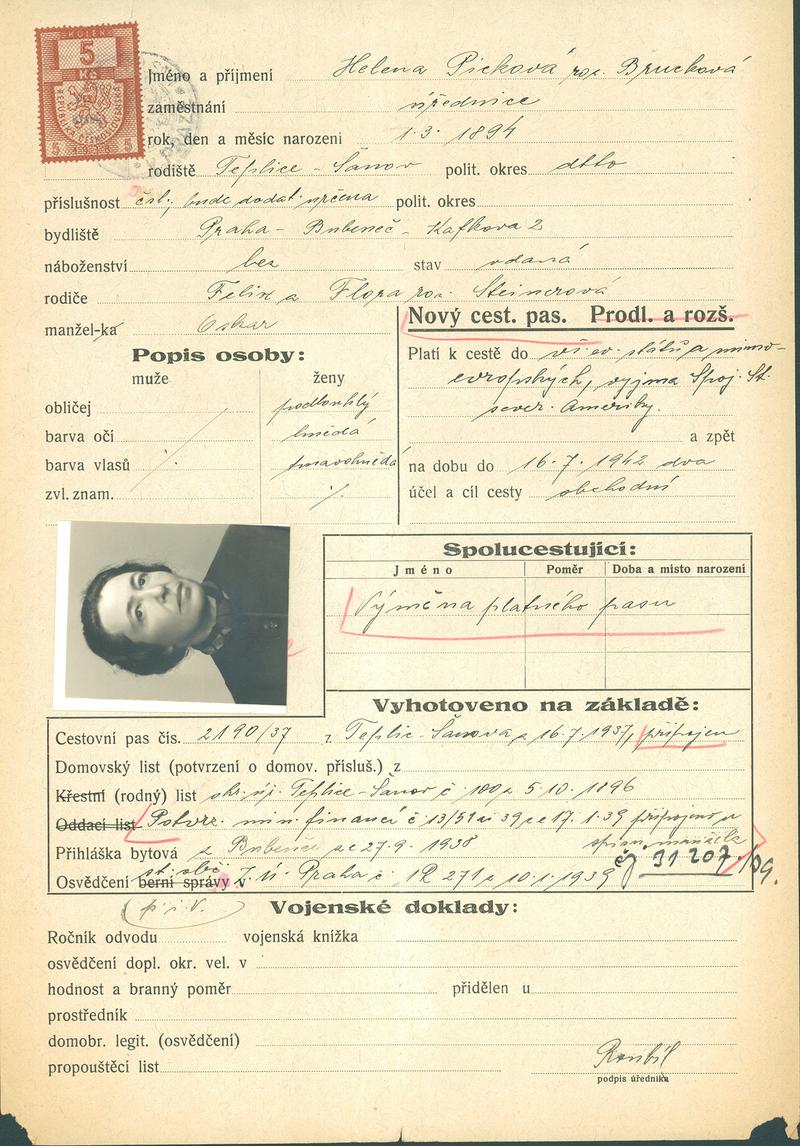 KOLEK
5
Kč
REPUBLIKA ČESKOSLOVENSKÁ
5 5
Jméno a příjmení Helena Picková roz. Brucková
zaměstnání úřednice
rok, den a měsíc narození 1.3. 1894
rodiště Teplice - Šanov polit. okres dtto
příslušnost čsl., bude dodat. určena polit. okres
bydliště Praha - Bubeneč - Kafkova 2
náboženství bez stav vdaná
rodiče Felix a Flora roz. Steinerová
manžel-ka Oskar
Nový cest. pas. Prodl. a rozš.
Popis osoby:
muže ženy
Platí k cestě do vš. ev. států a mimo-
evropských, vyjma Spoj. St.
sever. Ameriky.
a zpět
obličej podlouhlý
barva očí hnědá
barva vlasů tmavohnědá
zvl. znam.
na dobu do 16.7.1942 dva
účel a cíl cesty obchodní
Spolucestující:
Jméno Poměr Doba a místo narození
Výměna platného pasu
Vyhotoveno na základě:
Cestovní pas čís. 2190/37 z Teplic-Šanova z 16.7.1937, připojen
Domovský list (potvrzení o domov. přísluš.) z
Křestní (rodný) list okr. úř. Teplice-Šanov č 100 z 5.10.1896
Oddací list Potvrz. min. financí č 13/51 39 ze 17.1.39 připojeno u
spisu manžela
Přihláška bytová z Bubenče ze 27.9.1938
čj 31207/39.
Osvědčení berní správy v st. obč. Z. ú. Praha č. 1R 271 z 10.1.1939
p.i.V.
Vojenské doklady:
Ročník odvodu vojenská knížka
osvědčení dopl. okr. vel. v
hodnost a branný poměr přidělen u
prostředník
domobr. legit. (osvědčení)
propouštěcí list
Roubíl
podpis úředníka